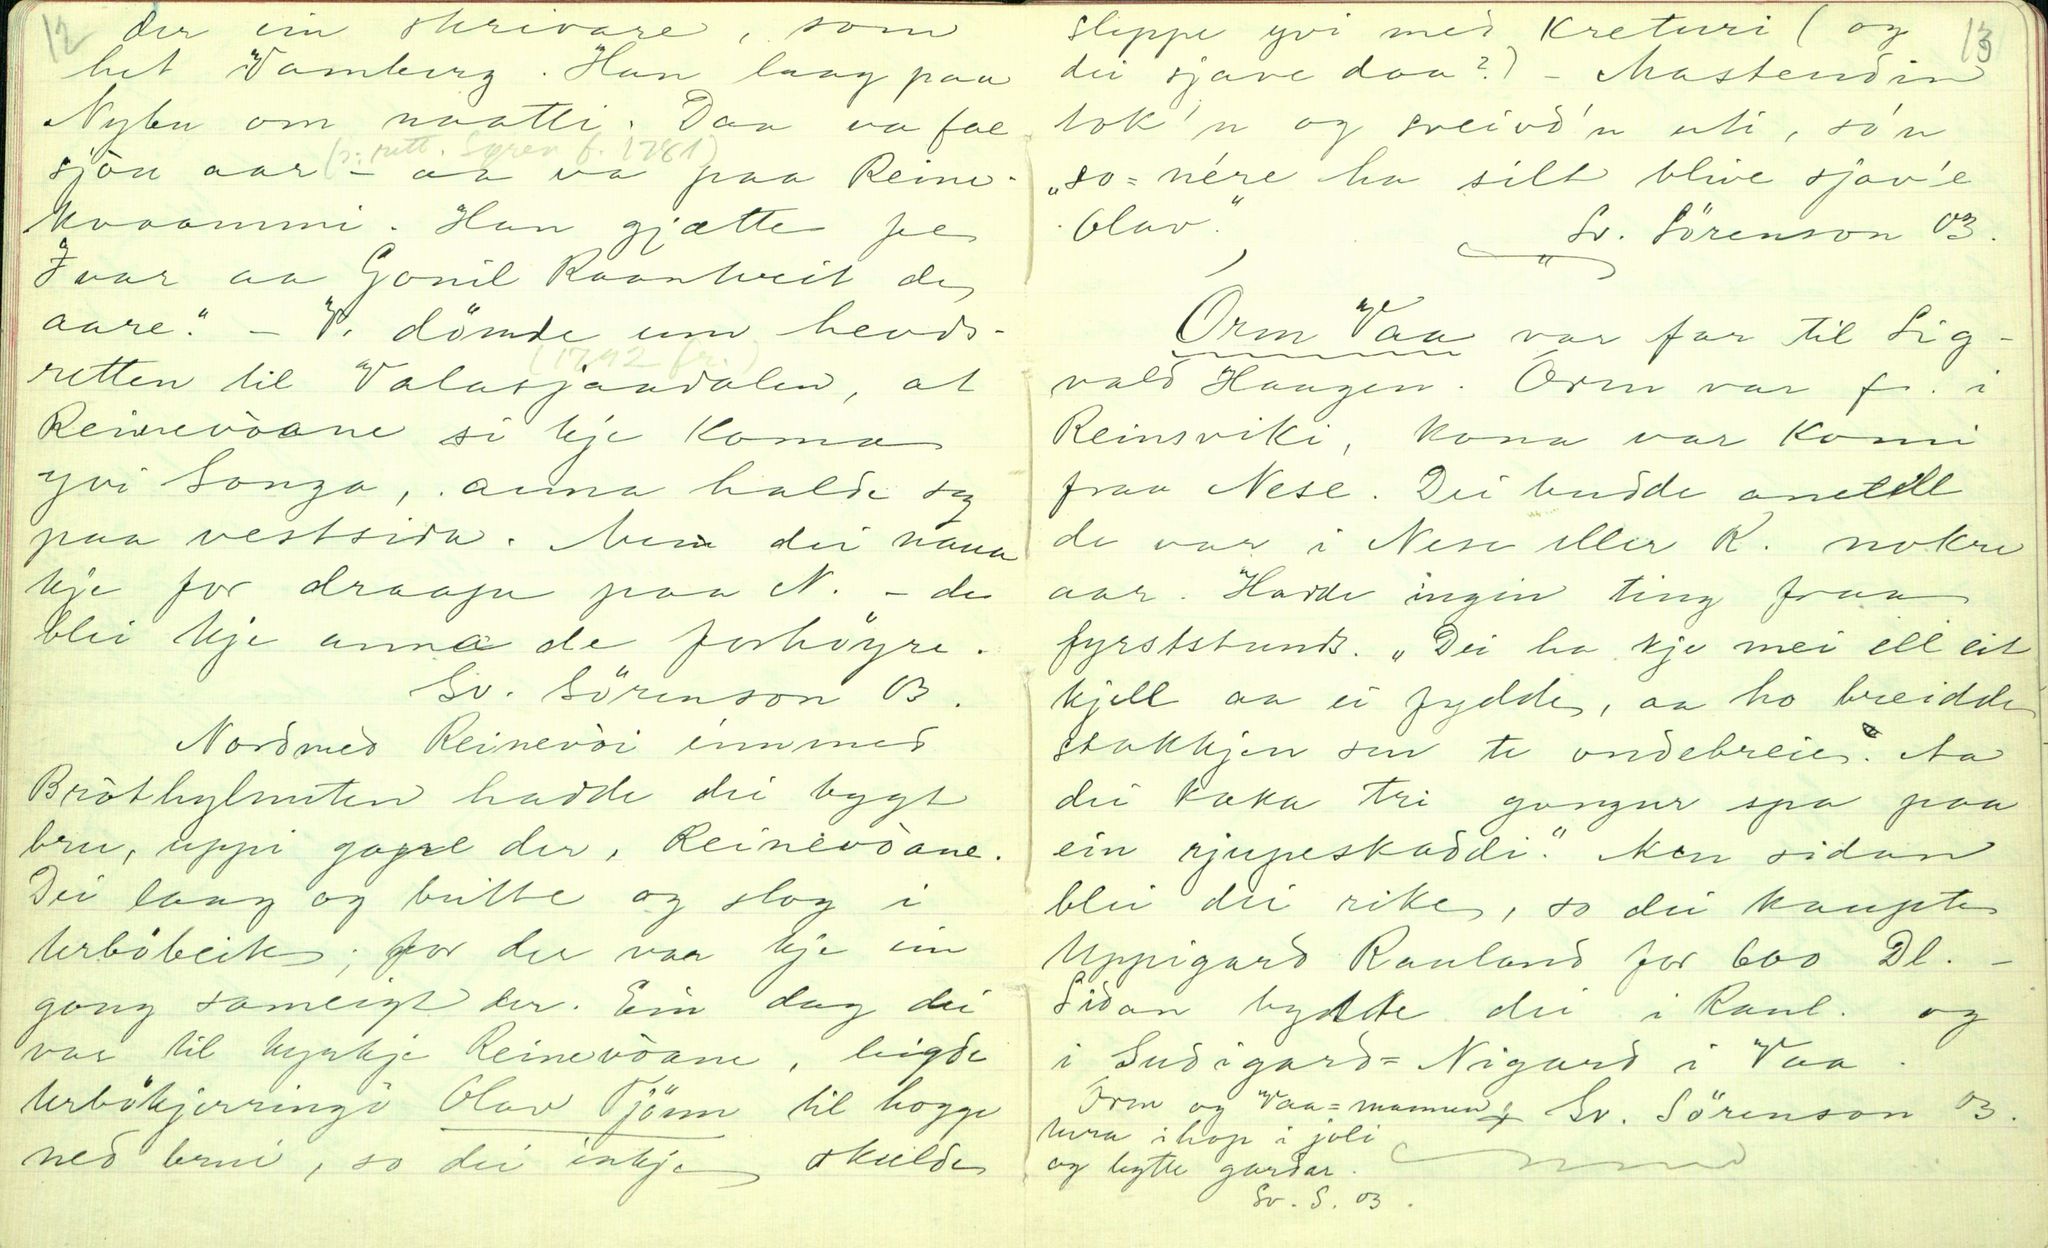 12
der ein skrivare, som
het Wamberg. Han laag paa
Nybu om naatti. Daa va fae
(s: rett. Syver f. 1781)
sjòu aar – aa va paa Reine-
kvaammi. Han gjætte fe
Ivar aa Gonil Raantveit de
aare." – V. dömde um hevds-
(1792 fr.)
retten til Valasjaadalen, at
Reinevòane si kje koma
yvi Songa, anna halde seg
paa vestsida. Men dei
kje for draape paa N. – de
blei kje anna de forhöyre.
Sv. Sörenson 03.
Nordmed Reinevòi innmed
Bròthylnuten hadde dei bygt
bru, uppi gople der, Reinevòane.
Dei laag og butte og slog i
Urböbeite; for der var kje ein
gong sameigt der. Ein dag dei
var til kyrkje Reinevòane, leigde
Urbökjerringè Olav Tjönn til hogge
ned brui, so dei inkje skulde
13
sleppe yvi med Kreturi (og
dei sjave daa?) – Mastendin
tok'n og sveivd'n uti, so'n
"so=nére ha silt blive sjøv'e
Olav."
Sv. Sörenson 03.
Orm Vaa var far til Sig-
vald Haagen. Orm var f. i
Reinsviki, kona var komi
fraa Nese. Dei budde anetell
de var i Nese eller R. nokre
aar. Hadde ingin ting fraa
fyrststunds. "Dei ha kje mei ell eit
kjell aa ei fydde, aa ho breidde
stakkjen sin te ondebreie. Aa
dei kaka tri gongur spa paa
ein rjupeskaddi." Men sidan
blei dei rike, so dei kaupte
Uppigard Rauland for 600 Dl. –
Sidan bytte dei i Raul. og
i Sudigard= Nigard i Vaa.
Orm og Vaa=mannen Sv. Sörenson 03.
ihop i joli
og bytte gardar.
Sv. S. 03.